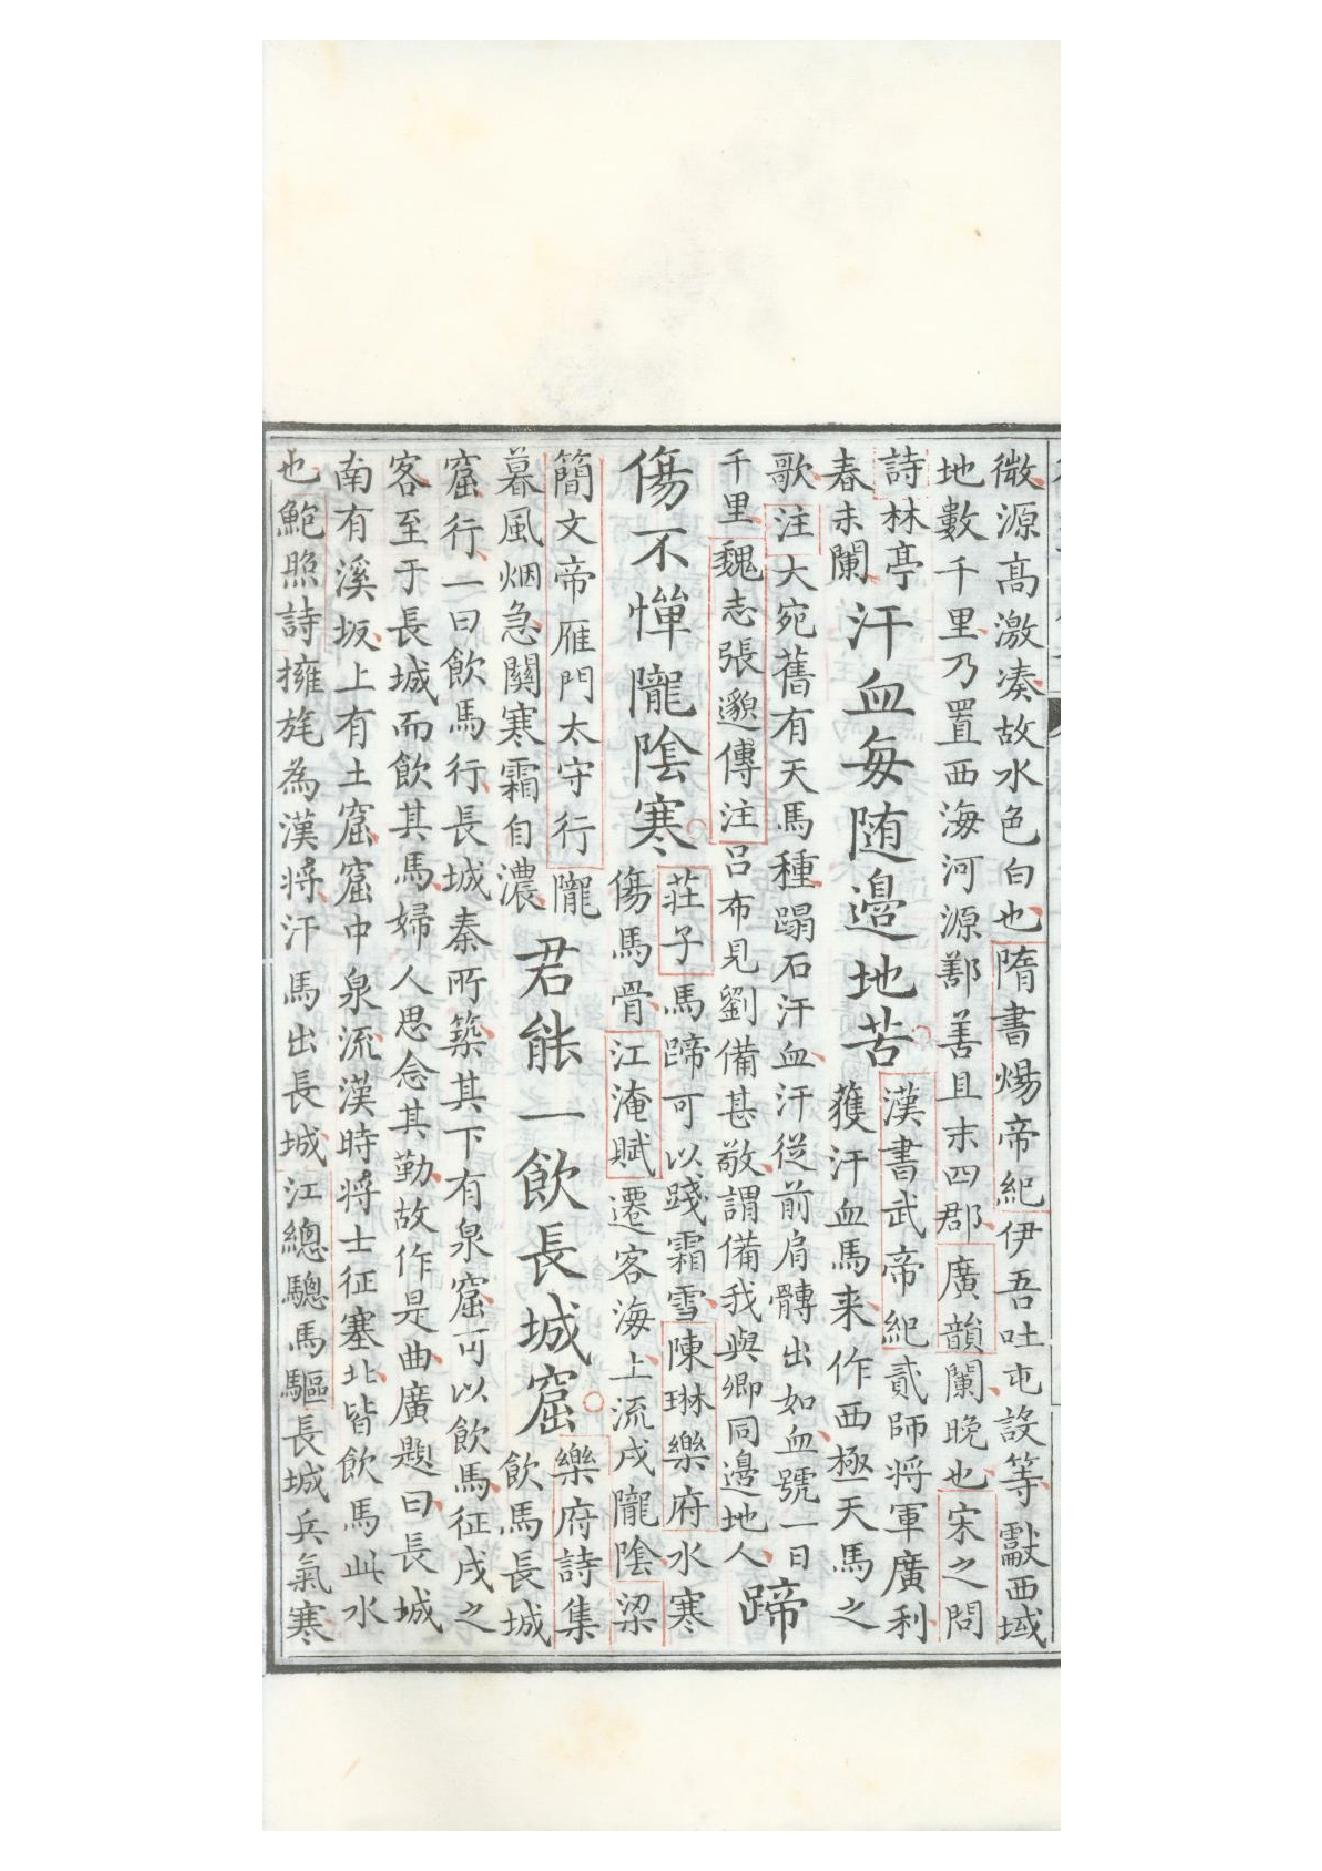 微源高激湊故水色白也隋書煬帝紀伊吾吐屯設等獻西域
地數千里乃置西海河源鄯善且末四郡廣韻闌晚也宋之問
詩林亭
春未闌
汗血每随邊地苦
漢書武帝紀貳師将軍廣利
獲汗血馬来作西極天馬之
歌注大宛舊有天馬種蹋石汗血汗從前肩髆出如血號一日
千里魏志張邈傳注呂布見劉備甚敬謂備我與卿同邊地人
蹄
傷不憚隴陰寒
莊子馬蹄可以踐霜雪陳琳樂府水寒
傷馬骨江淹賦遷客海上流戍隴陰梁
簡文帝雁門太守行隴
暮風烟急關寒霜自濃
君能一飲長城窟
樂府詩集
飲馬長城
窟行一曰飲馬行長城秦所築其下有泉窟可以飲馬征戍之
客至于長城而飲其馬婦人思念其勤故作是曲廣題曰長城
南有溪坂上有土窟窟中泉流漢時将士征塞北皆飲馬此水
也鮑照詩擁旄為漢将汗馬出長城江總驄馬驅長城兵氣寒